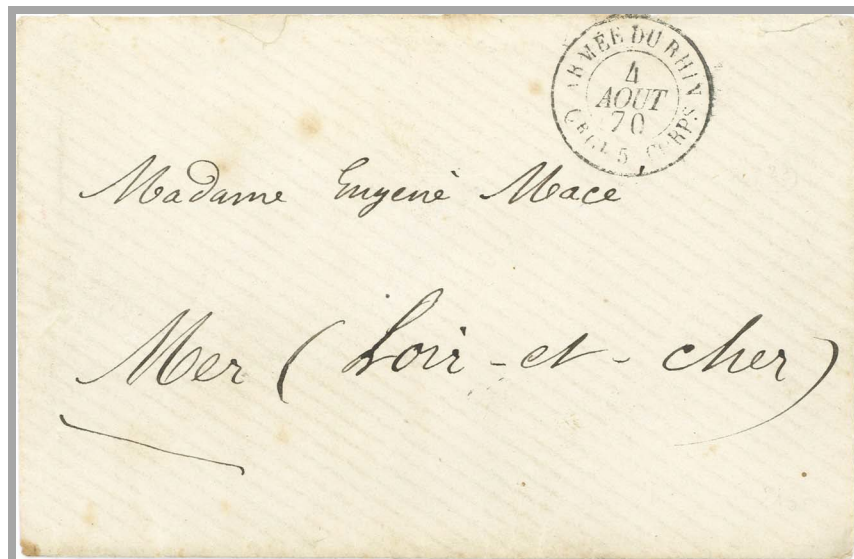 ARMÉE DU RHIN
4
AOUT
70
5 CORPS
Madame Eugene Mace
Mer (Loir-et-cher)